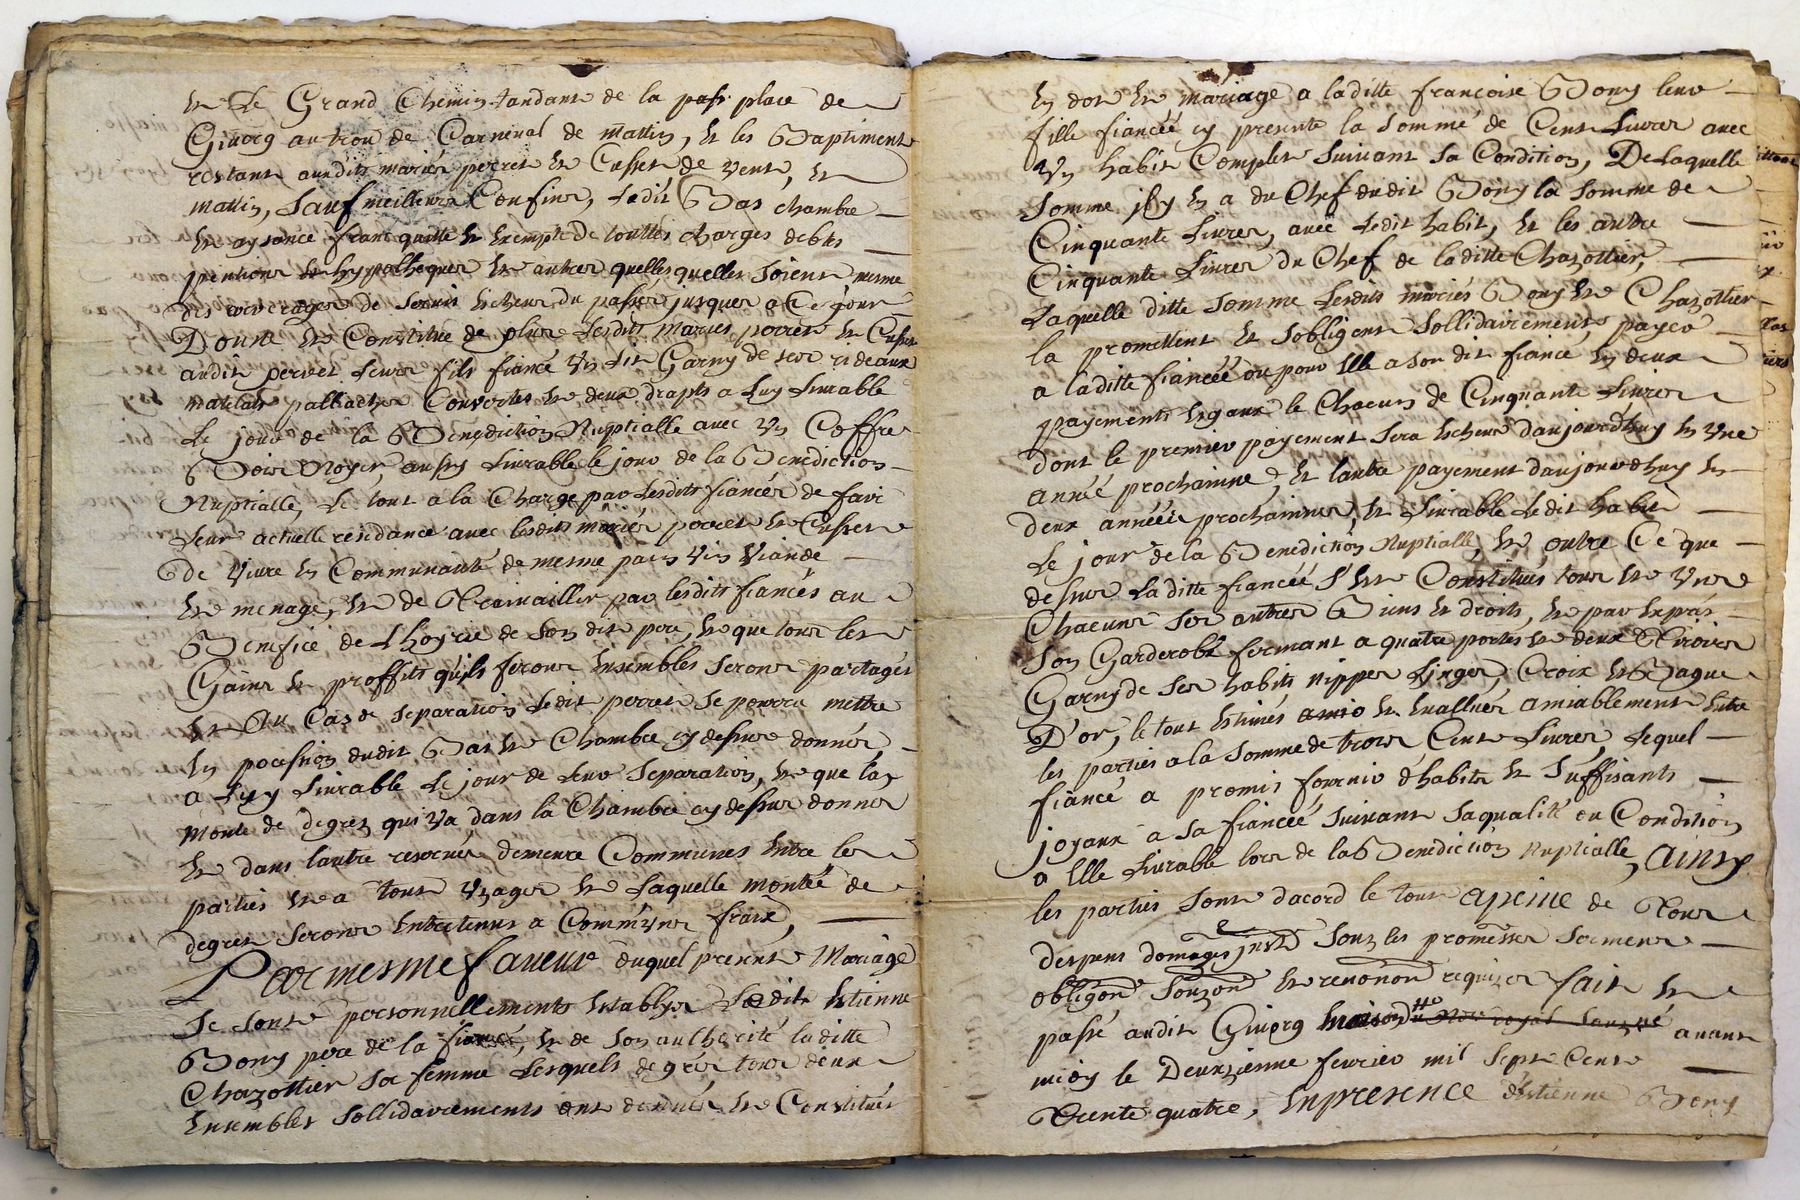 et le Grand Chemin tandant de la pass place de
Givorg au trou de Carnéval de mattin, et les Baptiment
restant auxdits mariés perret et Cusset de vent, et
mattin, Sauf meilleurs Confins, ledit Bas chambre
et aysance franc quitte et Exempte de touttes charges debtes
pentions et hypotheques et autres quelles quelles soient mesme
des arrerages de servis Echeus du passé jusques a Ce jour
Donne et Constitue de plus Lesdits mariés perret et Cusset
audit perret Leur fils fiancé Un Lit Garny de ses rideaux
mattelats palliache Couvertes et deux drapts a Luy Livrable
Le jour de la Benediction Nuptialle avec Un Coffre
Bois Noyer, aussy Livrable le jour de la Benediction
Nuptialle, Le tout a la Charge par Lesdits fiancés de faire
Leur actuelle residance avec lesdits mariés perret et Cusset
de Vivre En Communauté de mesme pain Vin Viande
et menage, et de Travailler par lesdits fiancés au
Benefice de L'hoyrie de Son dit pere, et que tous les
Gains et proffits qu'ils feront Ensembles Seront partagés
Et Au Cas de Separation Ledit perret Se pourra mettre
En pocession dudit Bas et Chambre cy dessus donnés
a Luy Livrable Le jour de Leur Separation, et que la
monte de degrez qui va dans la Chambre cy dessus donnée
Et dans lautre reservée demeure Communes Entre les
parties et a tous Uzages et Laquelle montée de
degres Seront Entretenus a Communs fraix,
Par mesme faveur duquel present Mariage
Se Sont personnellements Establys Ledit Estienne
Bony pere de la fiancée, et de Son autherité laditte
Chazottier Sa femme Lesquels de grés tous deux
Ensembles Sollidairements ont donnés et Constitués
En dot et mariage a laditte francoise Bony leur
fille fiancée cy presente la Somme de Cent Livres avec
Un habit Complet Suivant Sa Condition, De Laquelle
Somme jl y En a du Chef dudit Bony la Somme de
Cinquante Livres, avec Ledit habit, et les autre
Cinquante Livres du Chef de laditte Chazottier,
Laquelle ditte Somme Lesdits mariés Bony et Chazottier
la promettent et Sobligent Sollidairement payer
a laditte fiancée ou pour Elle a Son dit fiancé En deux
payements Egaux le Chacun de Cinquante Livres
dont le premier payement Sera Echeus daujourdhuy En Une
année prochainne, et lautre payement daujourdhuy En
deux années prochainnes, et Livrable Ledit habit
Le jour de la Benediction Nuptialle, et outre Ce que
dessus Laditte fiancée S'est Constitués tous et Uns
Chacuns Ses autres Biens et droits, et par Exprés
Son Garderobe fermant a quatre portes et deux Tiroirs
Garny de Ses habits nippes Linges, Croix et Bague
D'or, le tout Estimés amio et Evallués amiablement Entre
les parties a la Somme de trois Cent Livres, Lequel
fiancé a promis fournir d'habits et Suffisants
joyaux a Sa fiancée Suivant Sa qualité ou Condition
a Elle Livrable lors de la Benediction Nuptialle, Ainsy
les parties Sont dacord le tout apeine de Tous
despens domages jnst Souz les promesses Serment
obligon Souzon et renonon requizes fait et
passé audit Givorg maison du No.re royal Souzné avant
midy le Deuxzienme fevrier mil Sept Cent
Trente quatre, En presence d'Estienne Bony